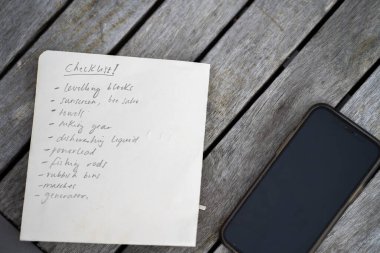 Checklist!
- levelling blocks
- sunscreen, bee
- towels
- hiking gear
- dishwashing liquid
- powerlead
- fishing rods
- rubbish bins
- matches
- generator